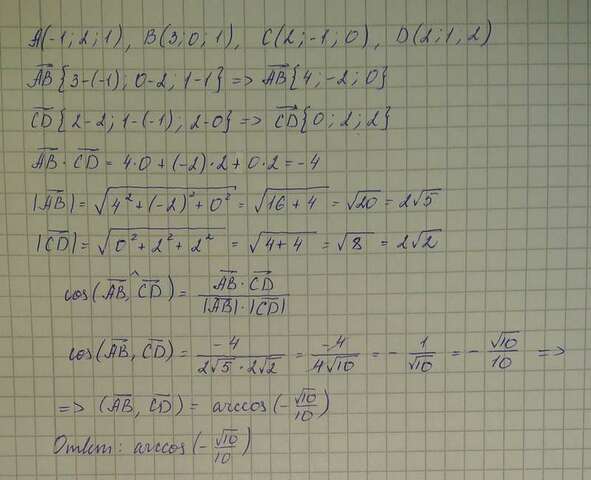 A(-1; 2; 1), B(3; 0; 1), C(2; -1; 0), D(2; 1; 2)
AB{3-(-1); 0-2; 1-1} => AB{4; -2; 0}
CD{2-2; 1-(-1); 2-0} => CD{0; 2; 2}
AB · CD = 4·0 + (-2)·2 + 0·2 = -4
|AB| = √(4² + (-2)² + 0²) = √(16 + 4) = √20 = 2√5
|CD| = √(0² + 2² + 2²) = √(4 + 4) = √8 = 2√2
cos(AB, CD) = AB · CD / |AB| · |CD|
cos(AB, CD) = -4 / 2√5 · 2√2 = -4 / 4√10 = - 1/√10 = - √10/10 =>
=> (AB, CD) = arccos(-√10/10)
Ответ: arccos(-√10/10)